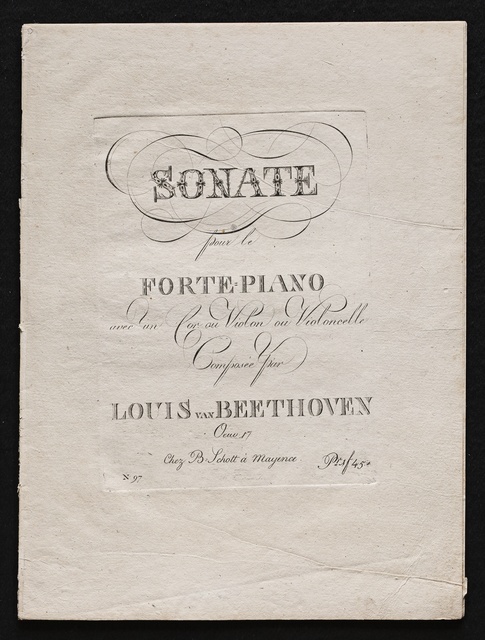 SONATE
pour le
FORTE=PIANO
avec un Cor ou Violon ou Violoncelle
Composée par
LOUIS VAN BEETHOVEN
Oeuv. 17
Chez B. Schott à Mayence
N 97